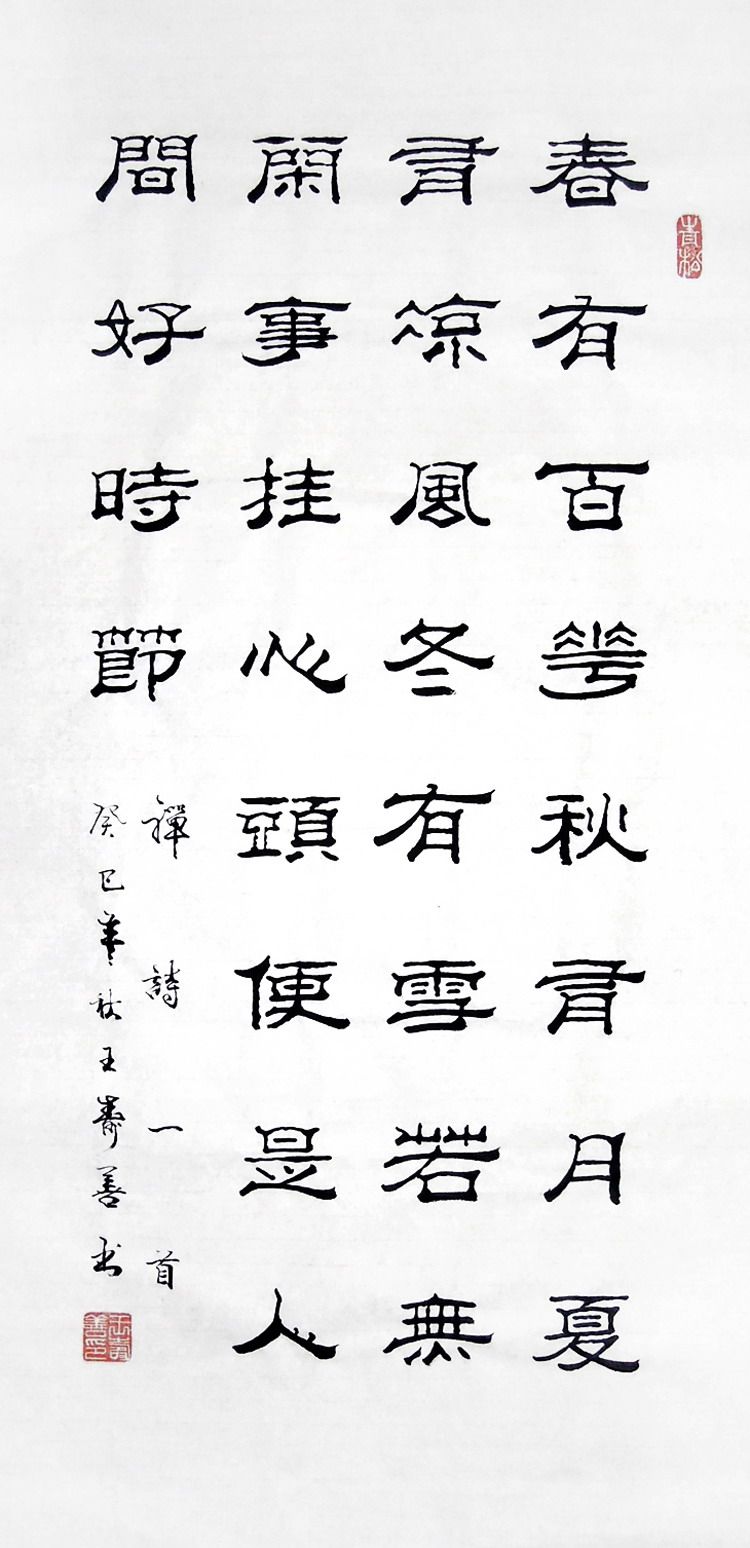 春有百花秋有月夏
有凉風冬有雪若無
閑事挂心頭便是人
間好時節
禪詩一首
癸巳秋王壽善书
青松
王壽善印